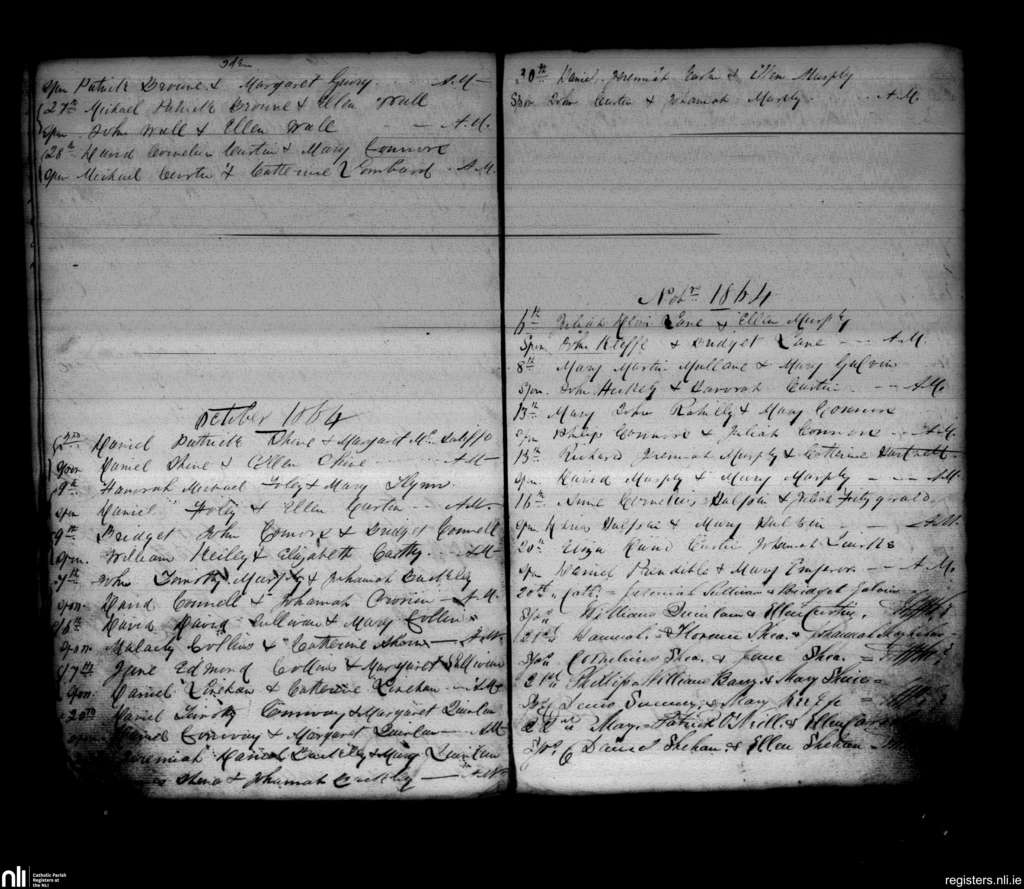 Spon Patrick Browne & Margaret Guiry A.M
27th Michael Patrick Browne & Ellen Wall
Spon John Wall & Ellen Wall A.M.
28th David Cornelius Curtin & Mary Connors
Spon Michael Curtin & Catherine Lombard A.M.
October 1864
2nd Daniel Patrick Shine & Margaret
Spon Daniel Shine & Ellen Shine A.M
9th Hanorah Michael Foley & Mary Flynn
Spon Daniel Foley & Ellen Curtin A.M.
9th Bridget John Connors & Bridget Connell
Spon William Keiley & Elizabeth Carthy A.M
John Timothy Murphy & Johannah Buckley
Spon. David Connell & Johannah A.M.
16th David David Sullivan & Mary Collins
Spon Malachy Collins & Catherine A.M.
17th Jane Edmond Collins & Margaret Sullivan
Spon. Daniel Linehan & Catherine Linehan A.M.
20th Daniel Timothy Conway & Margaret Quinlan
Daniel Conway & Margaret Quinlan A.M
Jeremiah Daniel Buckley & Mary Quinlan
Shine & Johannah Buckley A.M.
30th Daniel Jeremiah Curtin & Ellen Murphy
Spon John Curtin & Johannah Murphy A.M.
Nobr 1864
6th Juliah Lane & Ellen Murphy
Spon John Keeffe & Bridget Lane A.M.
8th Mary Martin Mullane & Mary Galvin
Spon. John Hickey & Hanorah Curtin A.M.
13th Mary John Rahilly & Mary Connors
Spon Philip Connors & Juliah Connors A.M.
13th Richard Jeremiah Murphy & Catherine Hartnett
Spon David Murphy & Mary Murphy A.M
16th Anne Cornelius & Fitzgerald
Spon & Mary A.M.
20th Eliza David Curtin Johannah
Spon Daniel & Mary A.M.
20th Cath. Jeremiah Sullivan & Bridget
Spon William Quinlan & Ellen Curtin
21st Hannah Florence Shea & Johannah
Spon Cornelius Shea & Jane Shea
21st Phillip William Barry & Mary
Spon Denis Sweeney & Mary Keeffe
22nd Mary Patrick O'Neill & Ellen
Spon Daniel Shehan & Ellen Shehan
nli Catholic Parish
Registers at
the NLI
registers.nli.ie